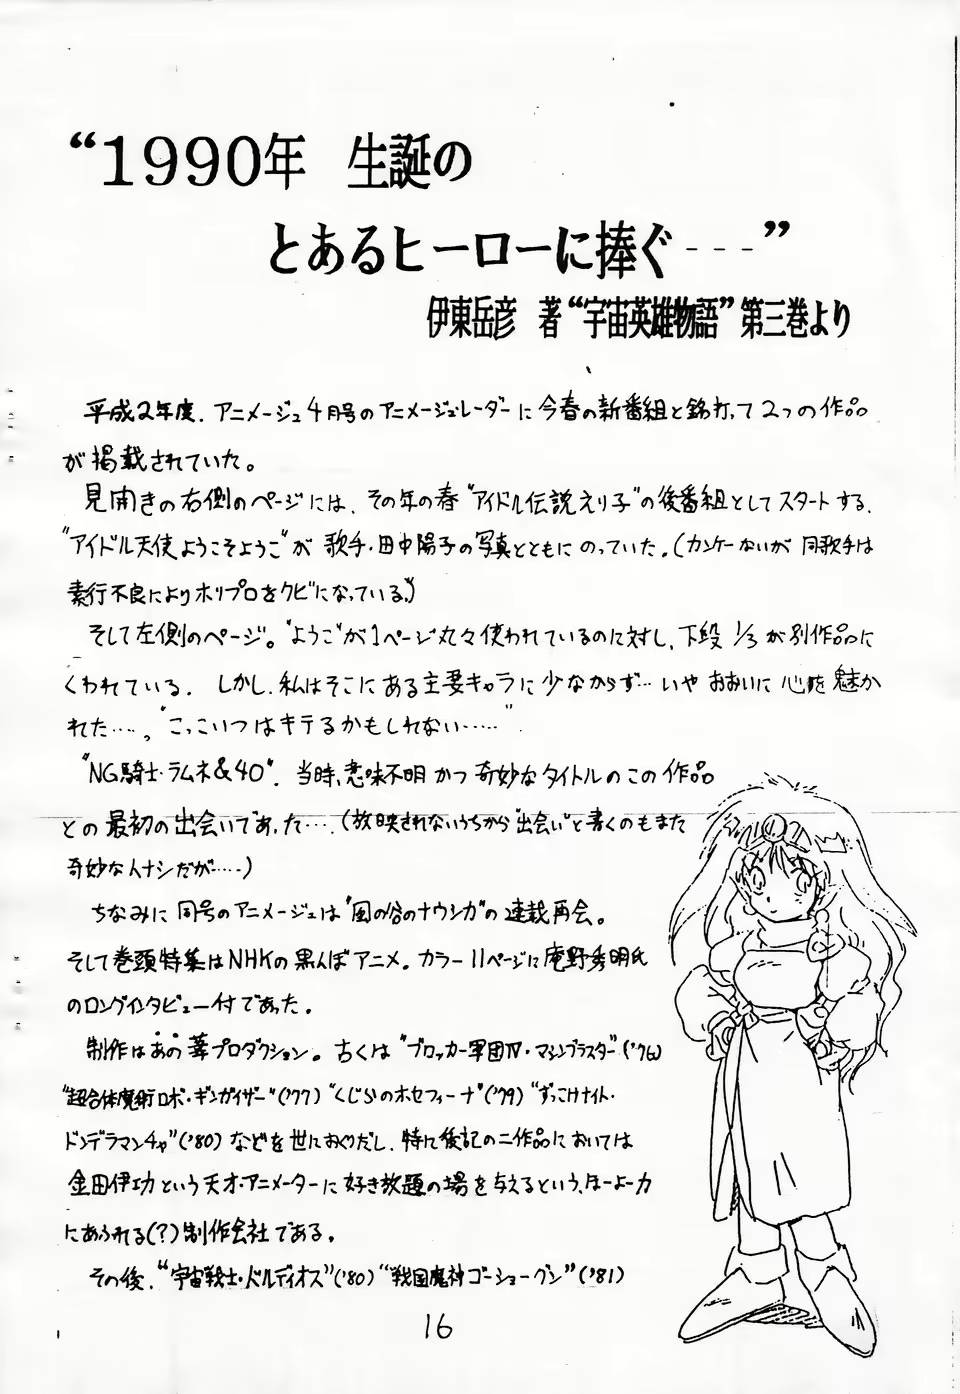 “1990年 生誕の
とあるヒーローに捧ぐ---”
伊東岳彦 著“宇宙英雄物語”第三巻より
平成2年度、アニメージュ4月号のアニメージュレーダーに今春の新番組と銘打って2つの作品
が掲載されていた。
見開きの右側のページには、その年の春“アイドル伝説えり子”の後番組としてスタートする、
“アイドル天使ようこそようこ”が歌手・田中陽子の写真とともにのっていた。(カンケーないが同歌手は
素行不良によりホリプロをクビになっている。)
そして左側のページ。“ようこ”が1ページ丸々使われているのに対し、下段1/3が別作品に
くわれている。しかし、私はそこにある主要キャラに少なからず…いやおおいに心を魅か
れた……。“こっこいつはキテるかもしれない……”
“NG騎士・ラムネ&40”。当時、意味不明かつ奇妙なタイトルのこの作品
との最初の出会いであった……(放映されないうちから“出会い”と書くのもまた
奇妙なハナシだが……)
ちなみに同号のアニメージュは“風の谷のナウシカ”の連載再会。
そして巻頭特集はNHKの黒んぼアニメ。カラー11ページに庵野秀明氏
のロングインタビュー付であった。
制作はあの葦プロダクション。古くは“ブロッカー軍団Ⅳ・マシンブラスター”('76)
“超合体魔術ロボ・ギンガイザー”('77)“くじらのホセフィーナ”('79)“ずっこけナイト・
ドンデラマンチャ”('80)などを世におくりだし、特に後記の二作品においては
金田伊功という天才・アニメーターに好き放題の場を与えるという、ほーよー力
にあふれる(?)制作会社である。
その後、“宇宙戦士・バルディオス”('80)“戦国魔神ゴーショーグン”('81)
16